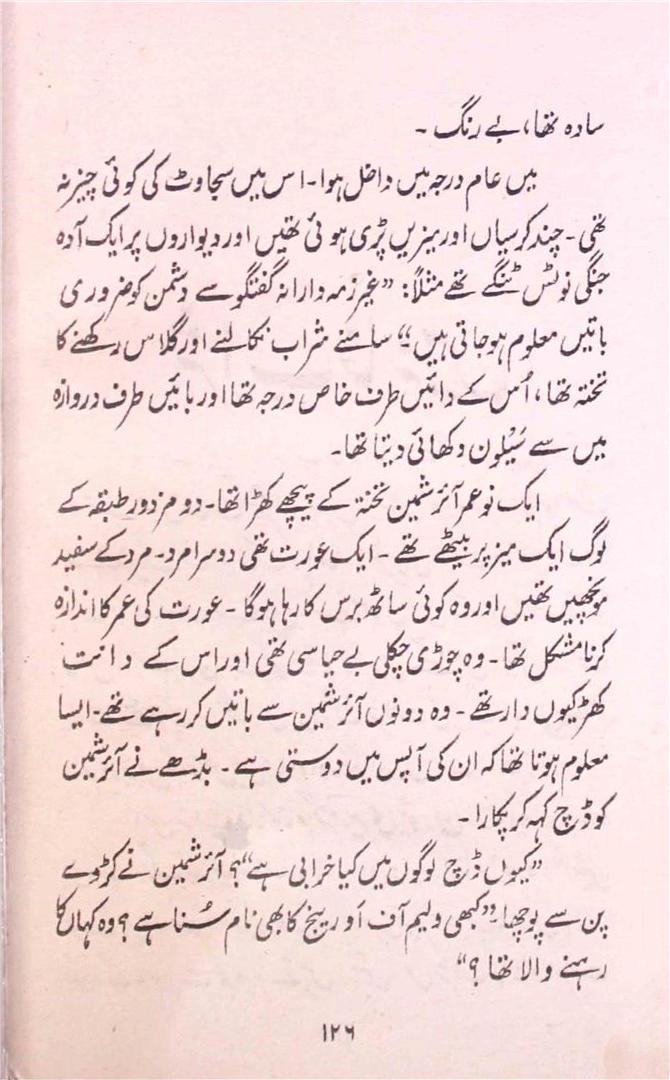 سادہ تھا، بے رنگ ۔
میں عام درجہ میں داخل ہوا۔ اس میں سجاوٹ کی کوئی چیز نہ
تھی۔ چند کرسیاں اور میزیں پڑی ہوئی تھیں اور دیواروں پر ایک آدہ
جنگی نوٹس ٹنگے تھے مثلاً: ”غیر ذمہ دارانہ گفتگو سے دشمن کو ضروری
باتیں معلوم ہو جاتی ہیں“ سامنے شراب نکالنے اور گلاس رکھنے کا
تختہ تھا، اُس کے دائیں طرف خاص درجہ تھا اور بائیں طرف دروازہ
میں سے سَیلون دکھائی دیتا تھا۔
ایک نو عمر آئرشمین تختہ کے پیچھے کھڑا تھا۔ دو مزدور طبقہ کے
لوگ ایک میز پر بیٹھے تھے ۔ ایک عورت تھی دوسرا مرد۔ مرد کے سفید
مونچھیں تھیں اور وہ کوئی ساٹھ برس کا رہا ہوگا ۔ عورت کی عمر کا اندازہ
کرنا مشکل تھا۔ وہ چوڑی چکلی بے حیا سی تھی اور اس کے دانت
کھڑکیوں دار تھے ۔ وہ دونوں آئرشمین سے باتیں کر رہے تھے۔ ایسا
معلوم ہوتا تھا کہ ان کی آپس میں دوستی ہے ۔ بڈھے نے آئرشمین
کو ڈچ کہہ کر پکارا ۔
”کیوں ڈچ لوگوں میں کیا خرابی ہے“؟ آئرشمین نے کڑوے
پن سے پوچھا۔ ”کبھی ولیم آف اَورینج کا بھی نام سُنا ہے؟ وہ کہاں کا
رہنے والا تھا؟“
۱۲۶